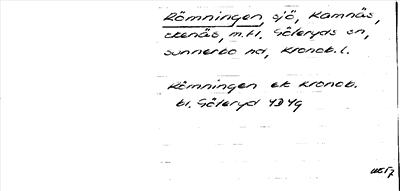 Römningen, sjö, Kamnäs,
ekenäs, m.fl. Göteryds sn,
sunnerbo hd, Kronob. l.
Römningen ek Kronob.
bl. Göteryd 4D 4g